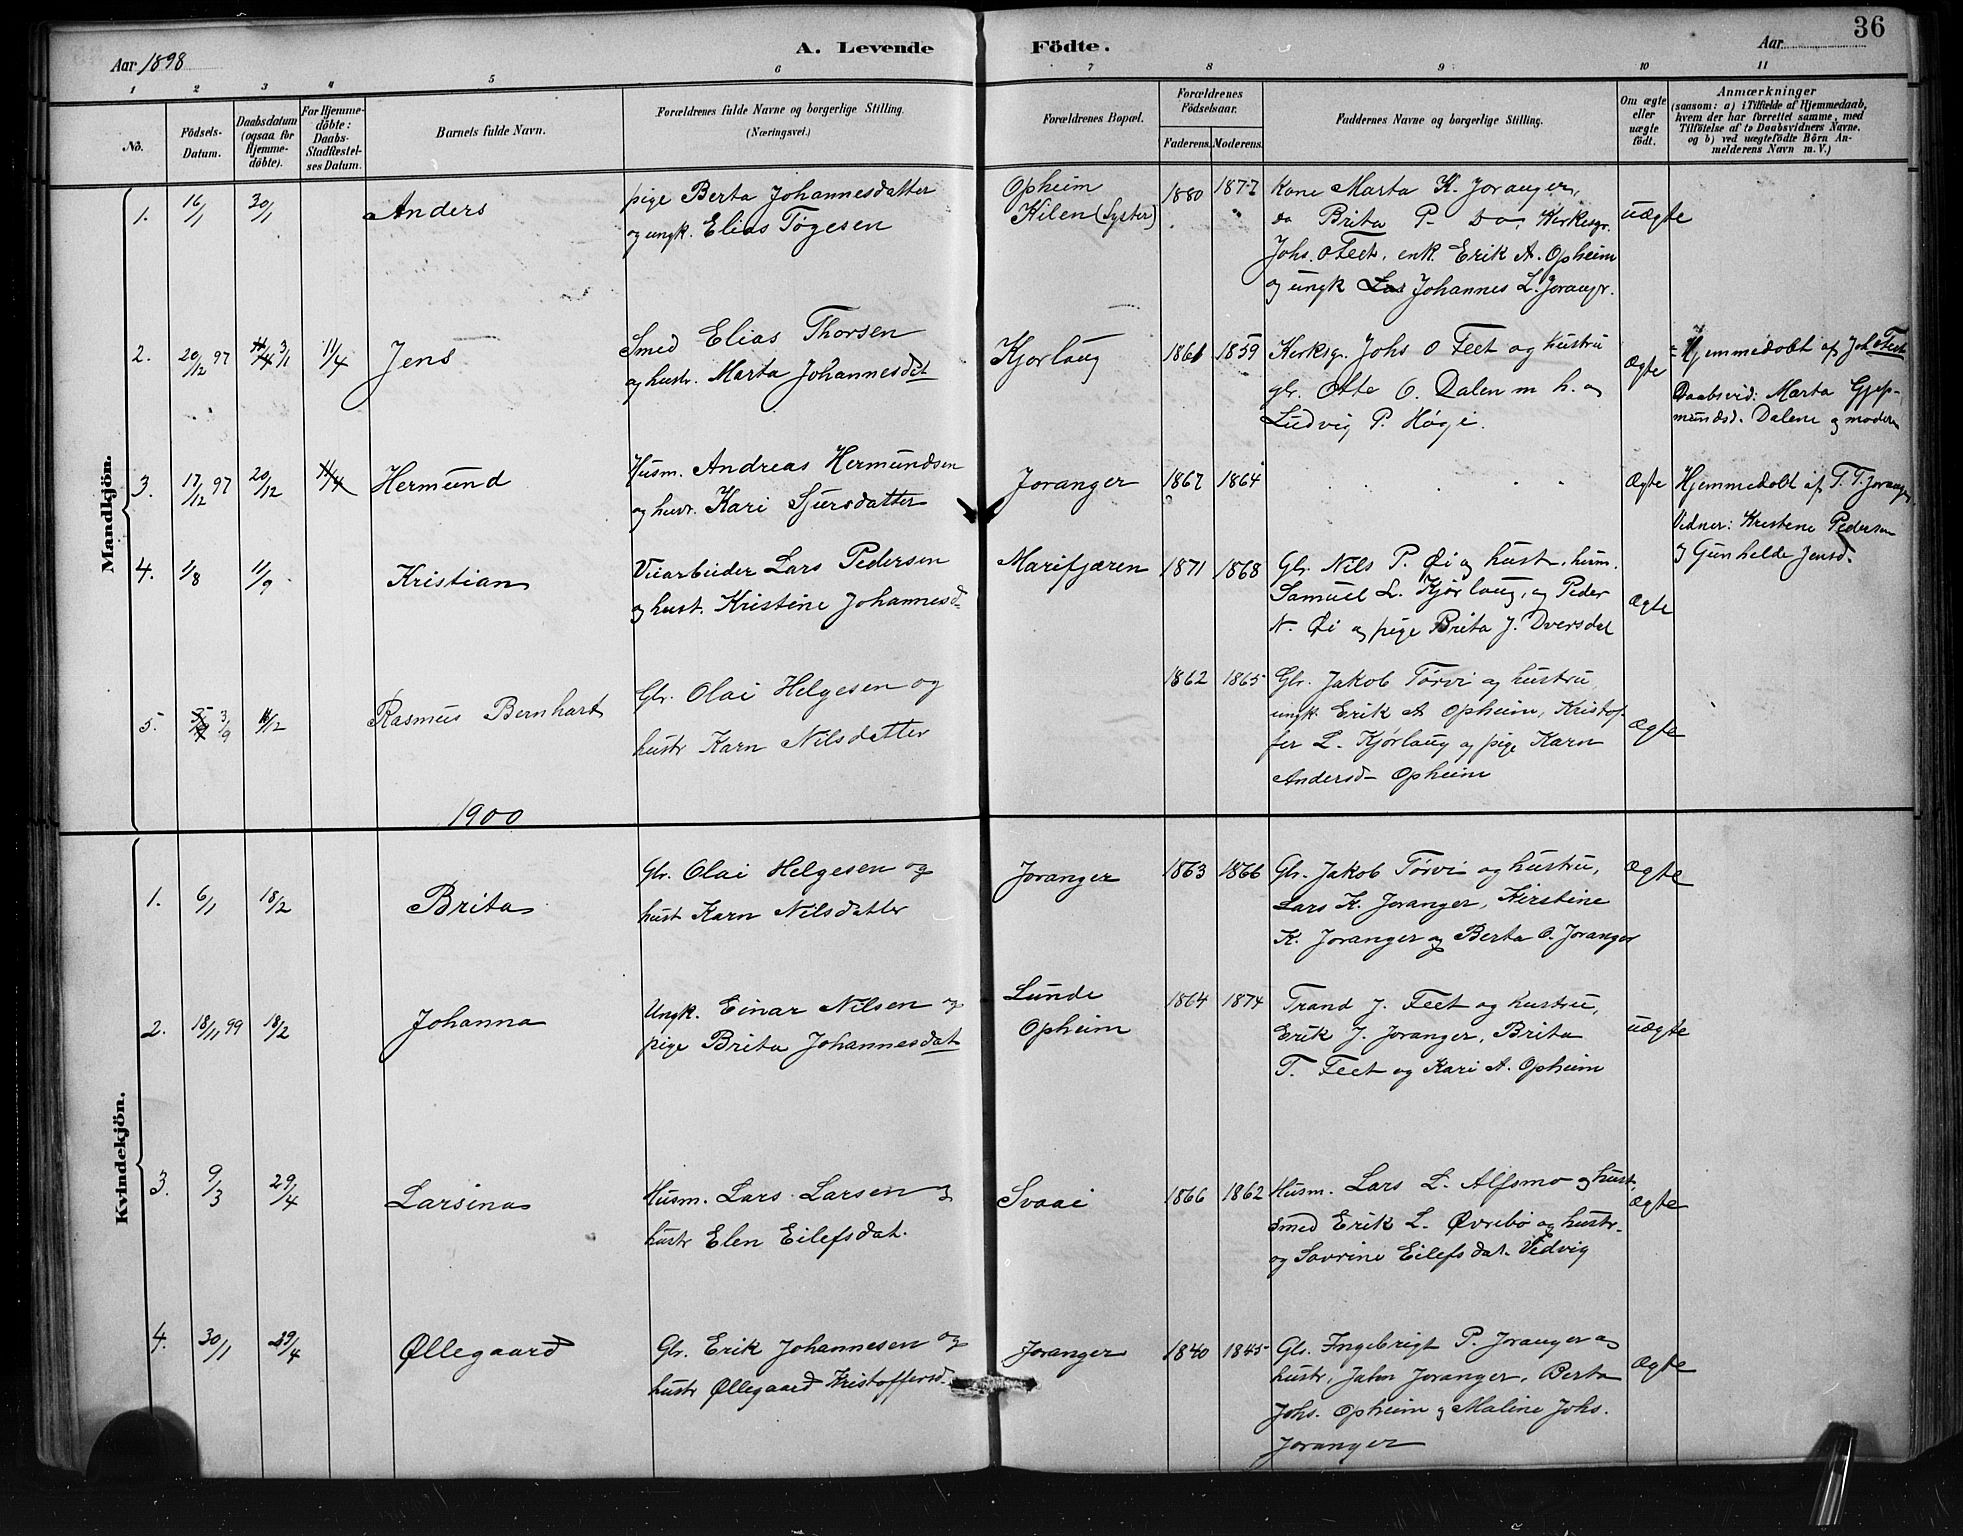 36
A. Levende Födte.
Aar 1898
Aar
1 2 3 4 5 6 7 8 9 10 11
No.
Födsels-Datum.
Daabsdatum (ogsaa for Hjemme-döbte).
For Hjemme-döbte: Daabs-Stadfæstel-ses Datum.
Barnets fulde Navn.
Forældrenes fulde Navne og borgerlige Stilling.
(Næringsvei.)
Forældrenes Bopæl.
Forældrenes Födselsaar.
Faderens. Moderens.
Faddernes Navne og borgerlige Stilling.
Om ægte eller uægte födt.
Anmærkninger
(saasom: a) i Tilfælde af Hjemmedaab,
hvem der har forrettet samme, med
Tilföielse af to Daabsvidners Navne.
og b) ved uægtefödte Börn An-
melderens Navn m. V.)
Mandkjön.
1. 16/1 30/1 Anders
pige Berta Johannesdatter
og ungk. Elias Tøgesen
Opheim
Kilen (Lyster)
1880 1877
Kone Marta K. Joranger,
do Brita P. Do, Kerkesgr.
Johs. O Feet, enk. Erik A. Opheim
og ungk Johannes L. Jorangr.
uægte
2. 20/12 97 3/1 11/4 Jens
Smed Elias Thorsen
og hustr. Marta Johannesdat
Kjorlaug
1861 1859
Kerksgr. Johs O Feet og hustru
gbr. Otte O. Dalen m h. og
Ludvig P. Høgi.
Ægte
Hjemmedobt af Joh O Feet
Daabsvid: Marta Gjep-
mundsd. Dalene og moderen
3. 17/12 97 20/12 11/4 Hermund
Husm. Andreas Hermundsen
og hustr. Kari Sjursdatter
Joranger
1867 1864
Ægte
Hjemmedobt af T. T. Joranger
Vidner: Kristene Pedersen
og Gunhilde Jensd.
4. 1/8 11/9 Kristian
Veiarbeider Lars Pedersen
og hust. Kristine Johannesd
Marifjæren
1871 1868
Gbr. Nils P. Øi og hust. husm.
Samuel L. Kjørlaug, og Peder
N. Øi og pige Brita J. Dversdal
Ægte
5. 3/9 11/12 Rasmus Bernhart
Gbr. Olai Helgesen og
hustr Karn Nilsdatter
1862 1865
Gbr. Jakob Tørvi og hustru,
ungk. Erik A Opheim, Kristof-
fer L. Kjørlaug og pige Karn
Andersd- Opheim
Ægte
1900
Kvindekjön.
1. 6/1 18/2 Brita
Gbr. Olai Helgesen og
hust Karn Nilsdatter
Joranger
1863 1866
Gbr. Jakob Tørvi og hustru,
Lars K. Joranger, Kirstine
K. Joranger og Berta O. Joranger
Ægte
2. 18/11 99 18/2 Johanna
Ungk. Einar Nilsen og
pige Brita Johannesdat
Lunde
Opheim
1864 1874
Trand J. Feet og hustru,
Erik J. Joranger, Brita
T. Feet og Kari A. Opheim
uægte
3. 9/3 29/4 Larsina
Husm. Lars Larsen og
hustr Elen Eilefsdat.
Svaai
1866 1862
Husm. Lars L. Alfsmo og hust,
smed Erik L. Øvrebø og hustr.
og Savrine Eilefsdat. Vedvig
Ægte
4. 30/1 29/4 Øllegaard
Gbr. Erik Johannesen og
hustr Øllegaard Kristoffersd.
Joranger
1840 1845
Gbr. Ingebrigt P. Joranger og
hustr, John Joranger, Berta
Johs. Opheim og Maline Johs.
Joranger
Ægte